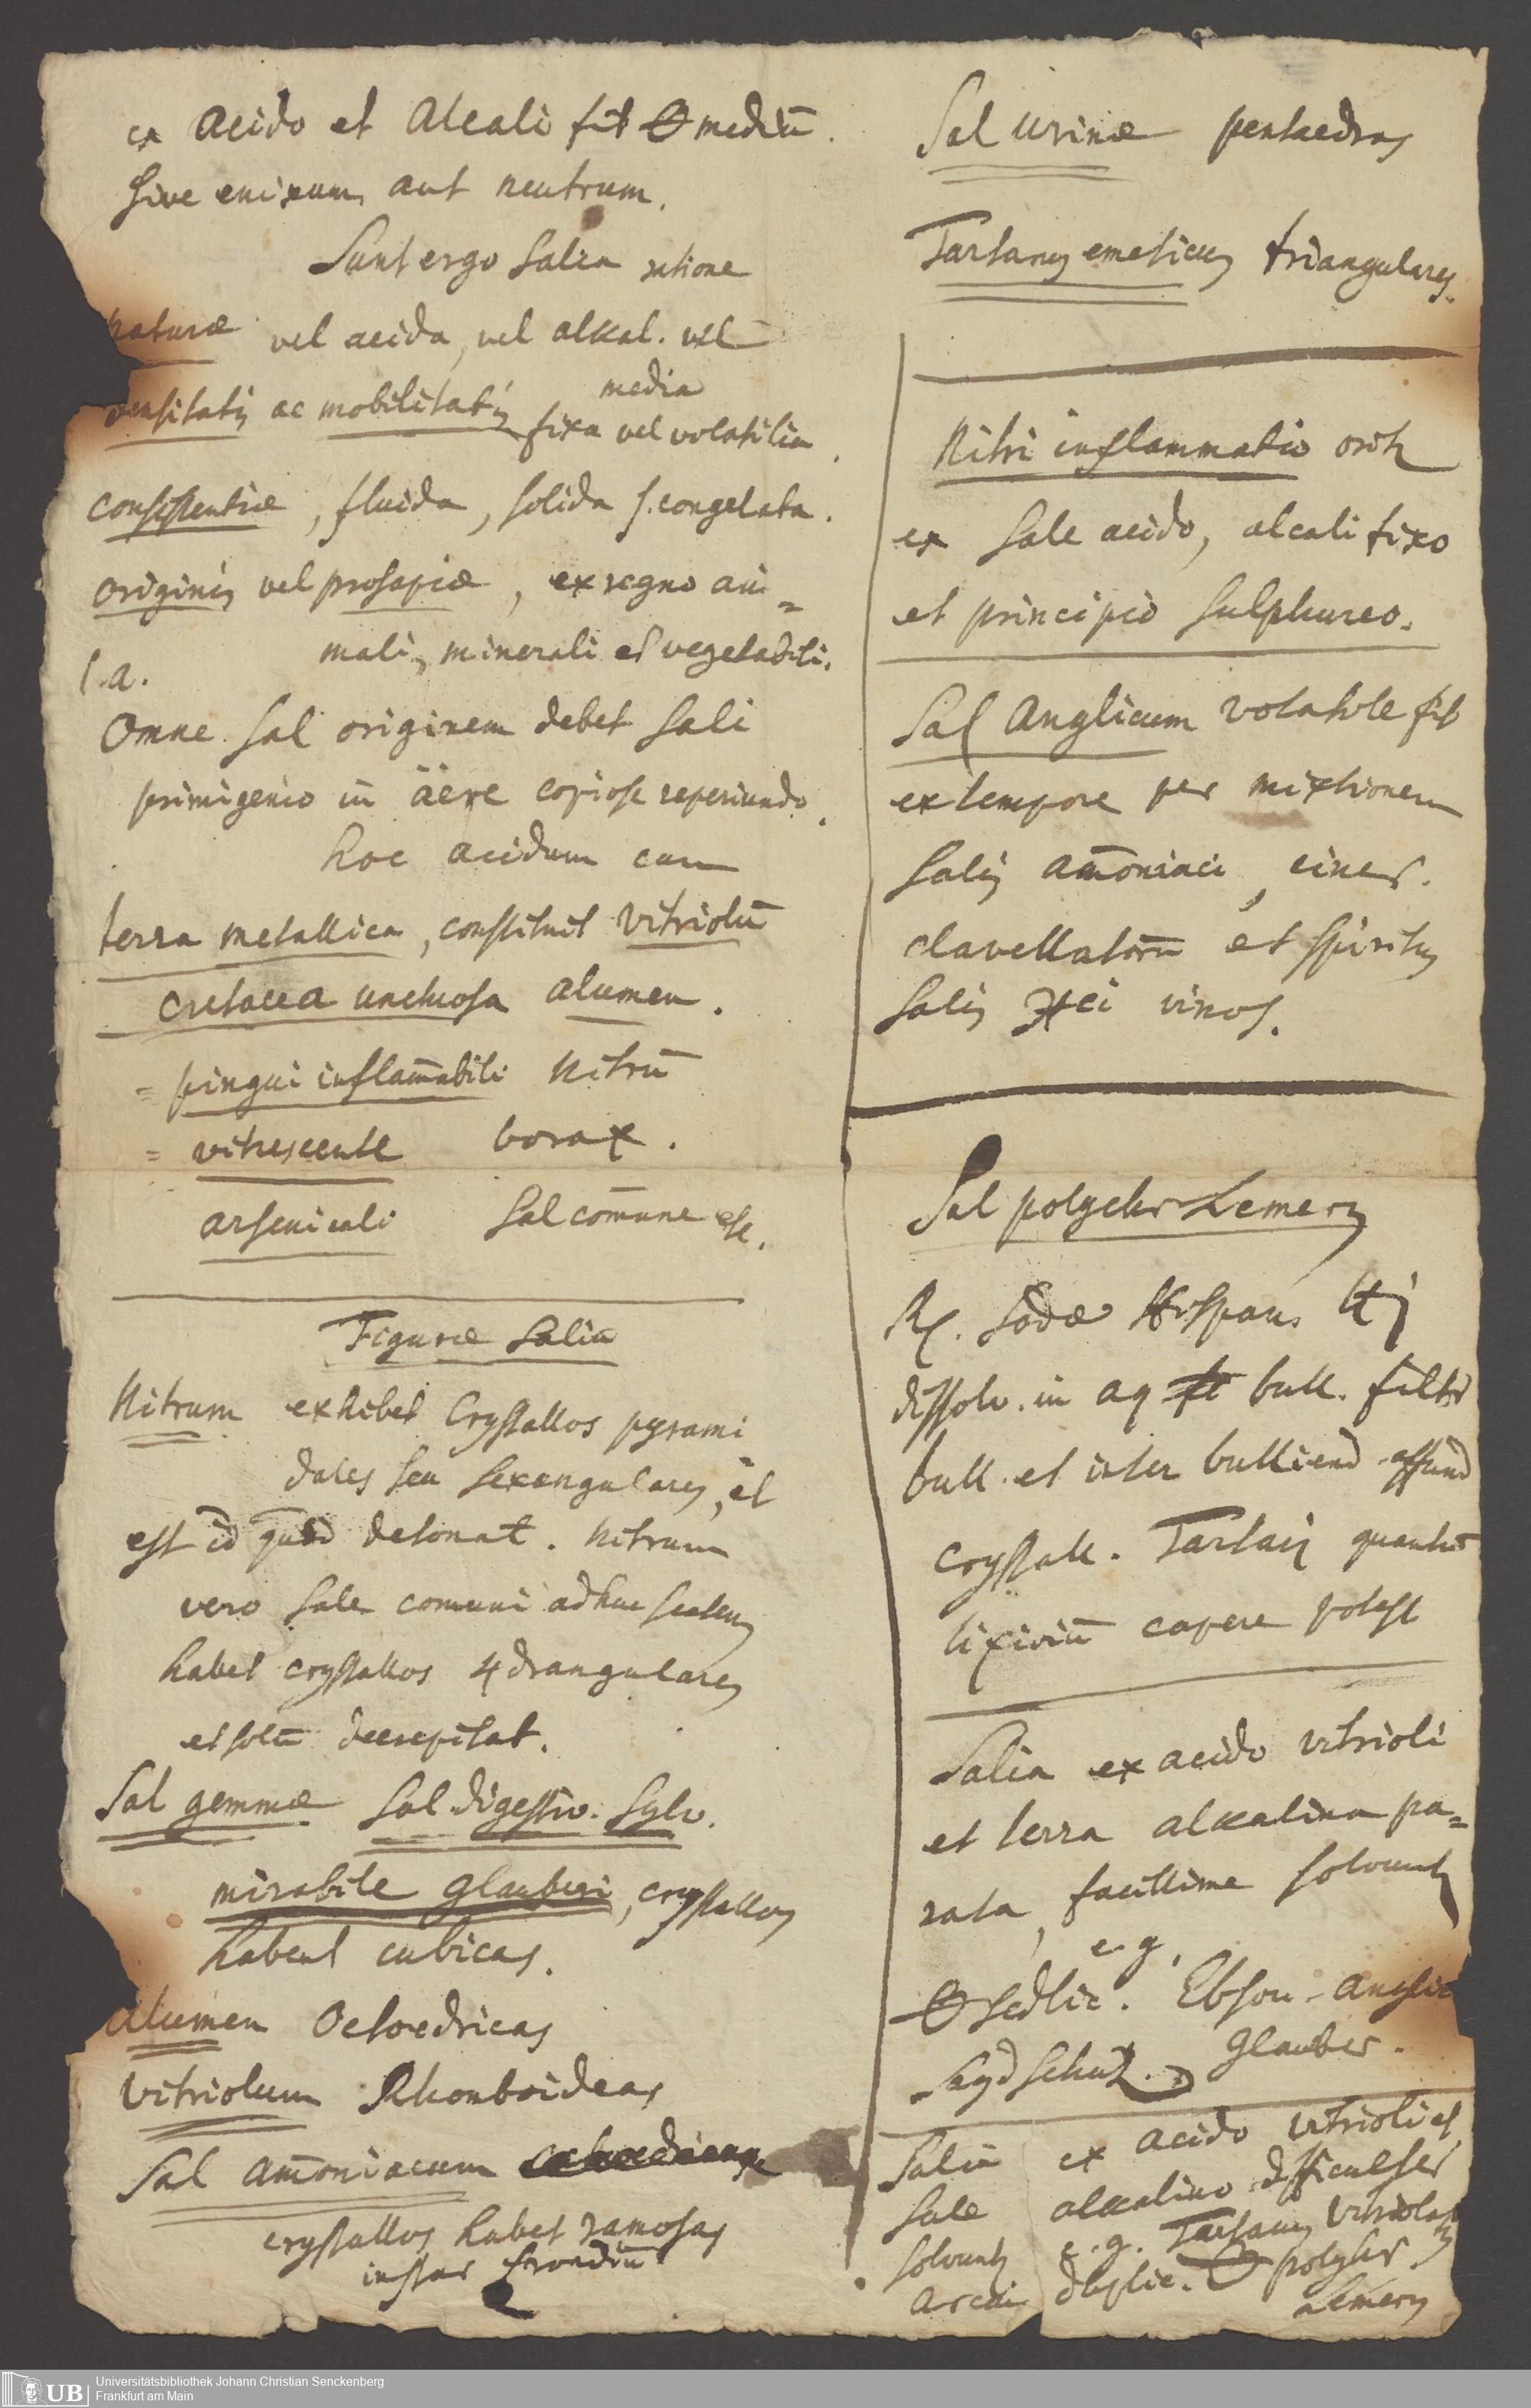 ex Acido et Alcali fit 🜔 mediū.
sive enixum aut neutrum.
Sunt ergo Salia ratione
naturæ vel acida, vel alkal. vel
media
densitatis ac mobilitatis fixa vel volatilia.
consistentiæ, fluida, solida s. congelata.
originis vel prosapiæ, ex regno ani=
mali, minerali et vegetabili.
l.a.
Omne sal originem debet sali
primigenio in äere copiose reperiundo.
hoc acidum cum
terra metallica, constituit Vitriolū
cretacea unctuosa alumen.
= pingui inflam̄abili Nitrū
= vitrescente borax.
arsenicali Sal com̄une etc.
Figuræ Saliū
Nitrum exhibet Crystallos pyrami
dales seu sexangulares, et
est id quod detonat. Nitrum
vero sale comuni adhuc scatens
habet crystallos 4drangulares
et solū decrepitat.
Sal gemmæ Sal digestiv. Sylv.
mirabile Glauberi, crystallos
habent cubicas.
Alumen Octoedricas
Vitriolum Rhomboideas
Sal am̄oniacum
crystallos habet ramosas
instar frondiū
Sal urinæ pentaedras
Tartarus emeticus triangulares.
Nitri inflammatio oritr
ex sale acido, alcali fixo
et principio sulphureo.
Sal Anglicum volatile fit
extempore per mixtionem
salis am̄oniaci, ciner.
clavellatorū et spiritus
salis 🞶ci vinos.
Sal polychr Lemery
℞. Sodæ Hispan. ℔j
dissolv. in aq bull. filtr
bull. et inter bulliend affund
crystall. Tartari quantū
lixiviū capere potest
Salia ex acido vitrioli
et terra alkalina pa=
rata, facillime solvuntr
e.g.
🜔 Sedlic. Ebson. Anglic
Saydschutz. Glauber.
Salia ex acido vitrioli et
sale alkalino difficulter
solvuntr e.g. Tartarus vitriolatus
arcan duplic. 🜔 polychr.
Lemery
Universitätsbibliothek Johann Christian Senckenberg
Frankfurt am Main
UB